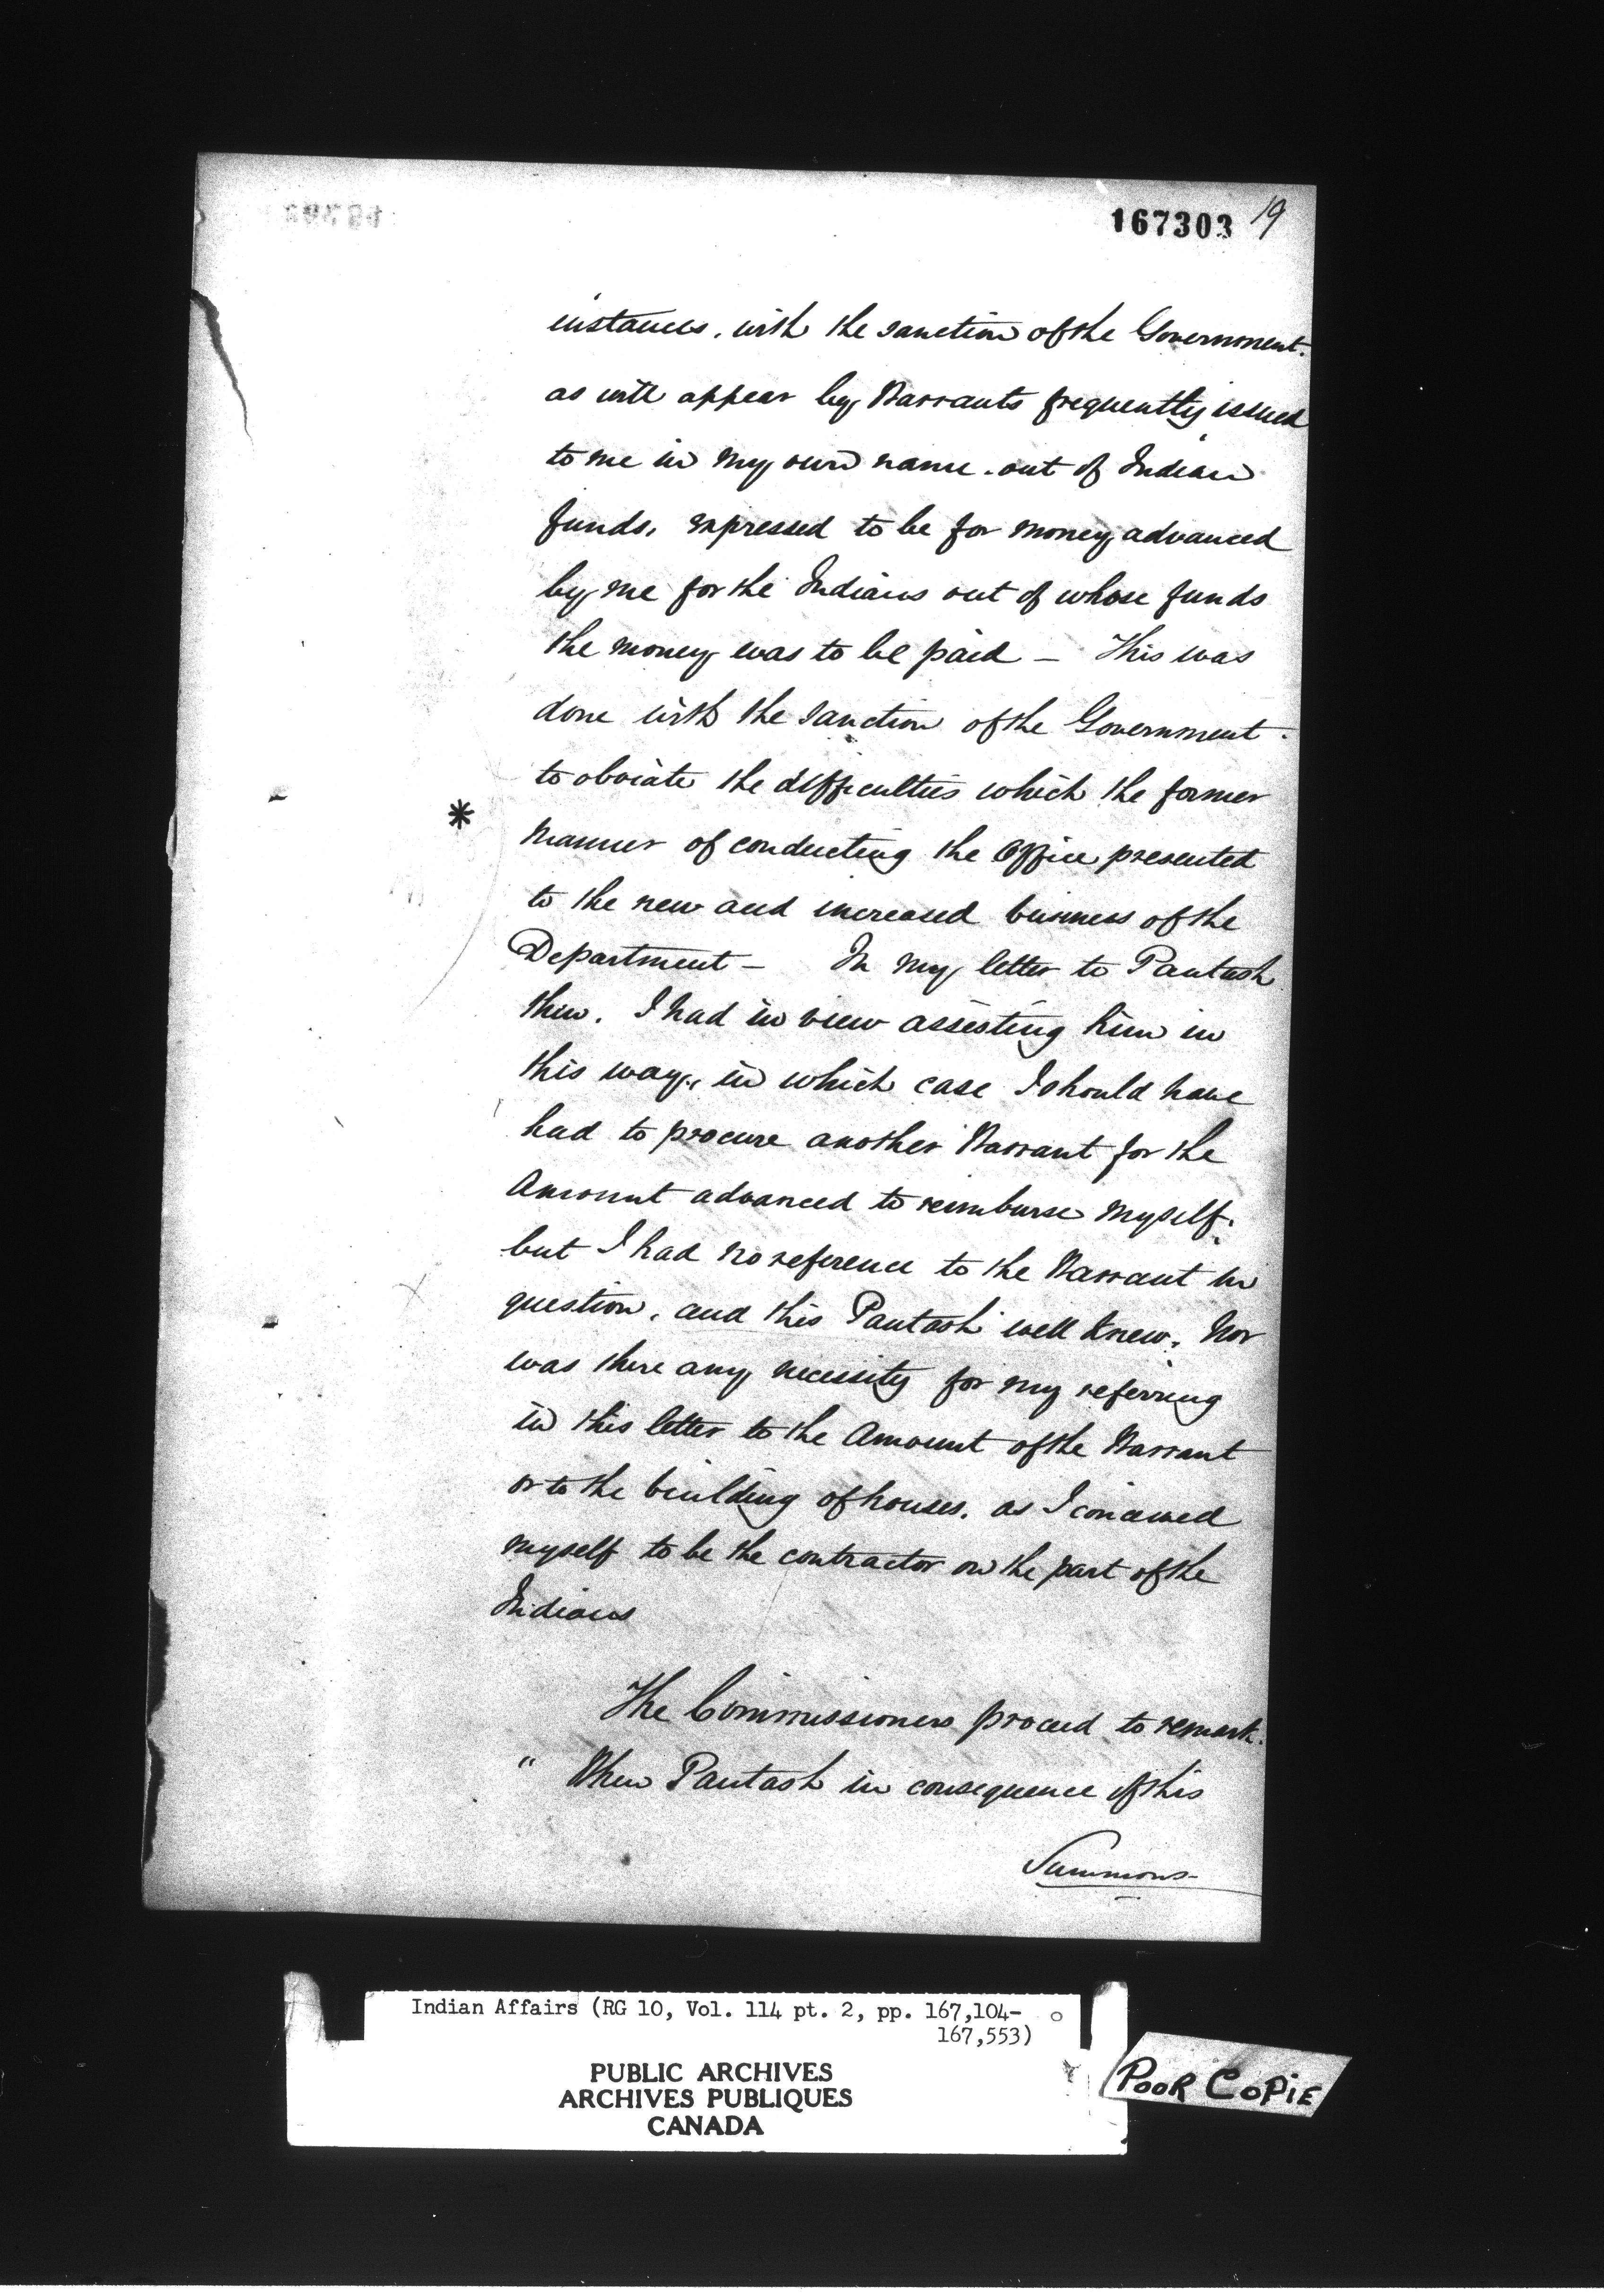 167303 19
instances, with the sanction of the Government.
as will appear by Warrants frequently issued
to me in my own name - out of Indian
funds, expressed to be for money advanced
by me for the Indians out of whose funds
the money was to be paid — This was
done with the sanction of the Government.
to obviate the difficulties which the former
* manner of conducting the Office presented
to the new and increased business of the
Department — In my letter to Pautash
then. I had in view assisting him in
this way, in which case I should have
had to procure another Warrant for the
Amount advanced to reimburse myself.
but I had no reference to the Warrant in
question, and this Pautash well knew. Nor
was there any necessity for my referring
in this letter to the Amount of the Warrant
or to the building of houses. as I conceived
myself to be the contractor on the part of the
Indians
The Commissioners proceed to remark.
" When Pautash in consequence of this
Summons
Indian Affairs (RG 10, Vol. 114 pt. 2, pp. 167,104-
167,553)
PUBLIC ARCHIVES
ARCHIVES PUBLIQUES
CANADA
POOR COPIE